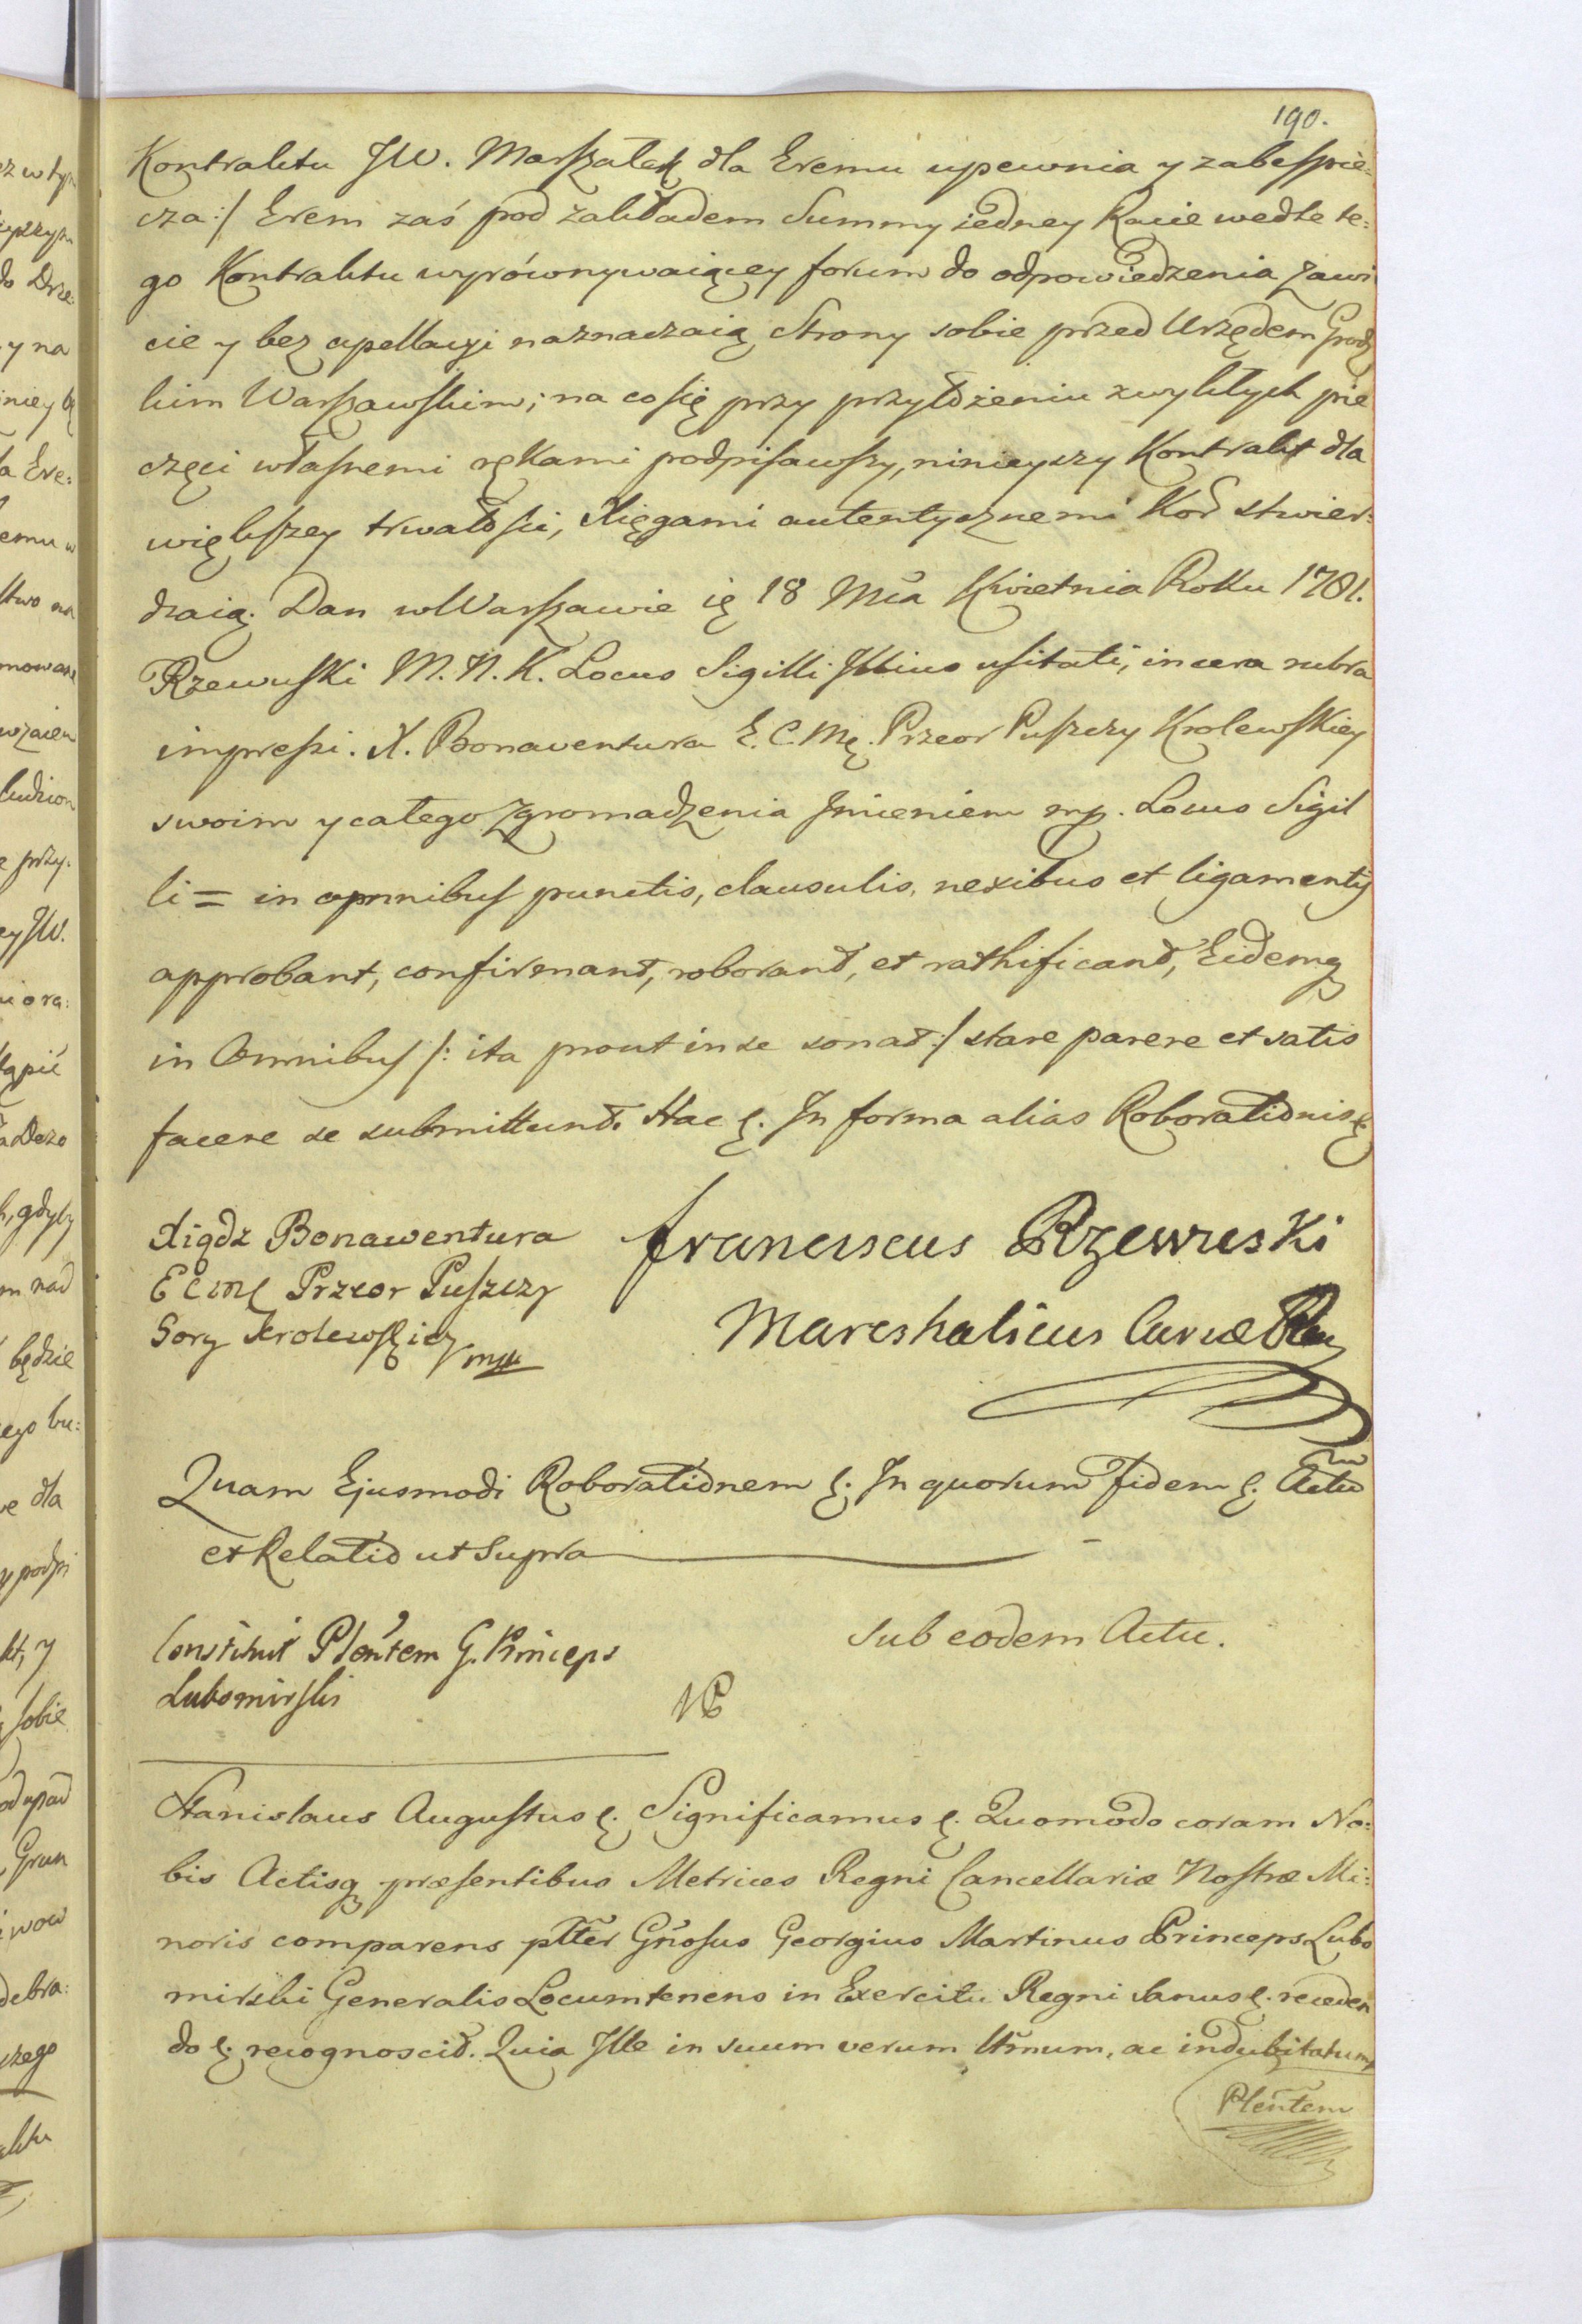 190.
Kontraktu JW. Marszałek dla Eremu upewnia y zabespie:
cza:/ Erem zaś pod zakładem Summy iedney Racie wedle te:
go Kontraktu wyrównywaiącey forum do odpowiedzenia zawi
cie y bez apellacyi naznaczaią Strony sobie przed Urzędem Grodz
kim Warszawskim; na co się przy przyłożeniu zwykłych pie
częci własnemi rękami podpisawszy, ninieyszy Kontrakt dla
większey trwałości, Xięgami autentycznemi Kor̃ stwier:
dzaią. Dan w Warszawie ię 18 Mca Kwietnia Roku 1781.
Rzewuski M. N. K. Locus Sigilli Illius usitati, in cera rubra
impressi. X. Bonaventura E. C. Mę. Przeor Puszczy Krolewskiey
swoim y całego Zgromadzenia Jmieniem mp. Locus Sigil
li = in omnibus punctis, clausulis, nexibus et ligamentis
approbant, confirmant, roborant, et rathificant, Eidemq
in Omnibus /: ita prout in se sonat :/ stare parere et satis
facere se submittunt. Hac ę. In forma alias Roborationis ę.
Xiądz Bonawentura
E C mę Przeor Puszczy
Gory Krolewskiey mp
Franciscus Rzewuski
Mareshalicus Curiæ Reg
Quam Ejusmodi Roborationem ę. In quorum Fidem ę. Actũ
et Relatio ut Supra
Constituit Pleñtem G. Princeps
Lubomirski
Sub eodem Actu.
Stanislaus Augustus ę. Significamus ę. Quomodo coram No:
bis Actisq præsentibus Metrices Regni Cancellariæ Nostræ Mi:
noris comparens pltter Gñosus Georgius Martinus Princeps Lubo
mirski Generalis Locumtenens in Exercitu Regni Sanus ę. receden
do ę. recognoscit. Quia Ille in suum verum ltmum, ac indubitatum
Pleñtem